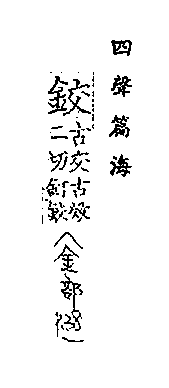 四聲篇海
鉸古爻古效
二切釘鉸
︿金部